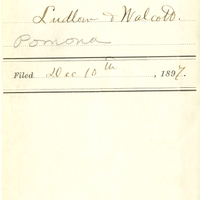 Ludlow & Walcott.
Pomona
Filed Dec 10th, 1897.